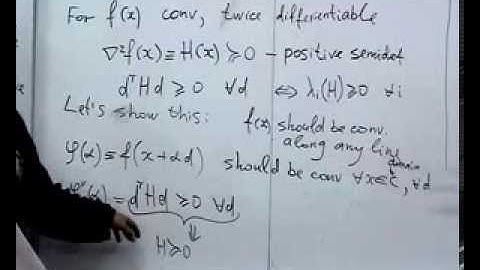 For f(x) conv, twice differentiable
∇²f(x) ≡ H(x) ≽ 0 – positive semidef
dᵀHd ≥ 0 ∀d ⇔ λᵢ(H) ≥ 0 ∀i
Let's show this: f(x) should be conv.
along any line
φ(α) ≡ f(x+αd) should be conv ∀x∈C, ∀d
domain
φ''(α) = dᵀHd ≥ 0 ∀d
⇓
H ≽ 0